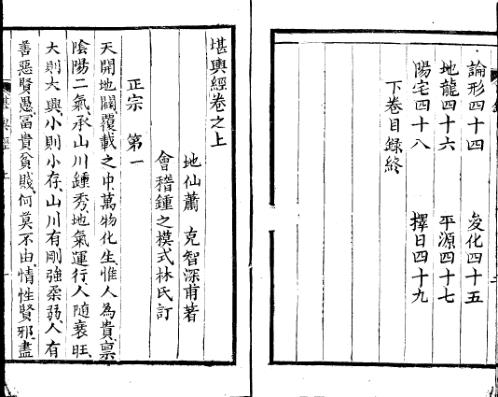 論形四十四 變化四十五
地龍四十六 平源四十七
陽宅四十八 擇日四十九
下卷目錄終
堪輿經卷之上
地仙蕭 克智深甫著
會稽鍾之模式林氏訂
正宗 第一
天開地闢覆載之中萬物化生惟人為貴稟
陰陽二氣承山川鍾秀地氣運行人隨衰旺
大則大興小則小存山川有剛強柔弱人有
善惡賢愚冨貴貧賤何莫不由情性賢邪盡
堪輿經 上